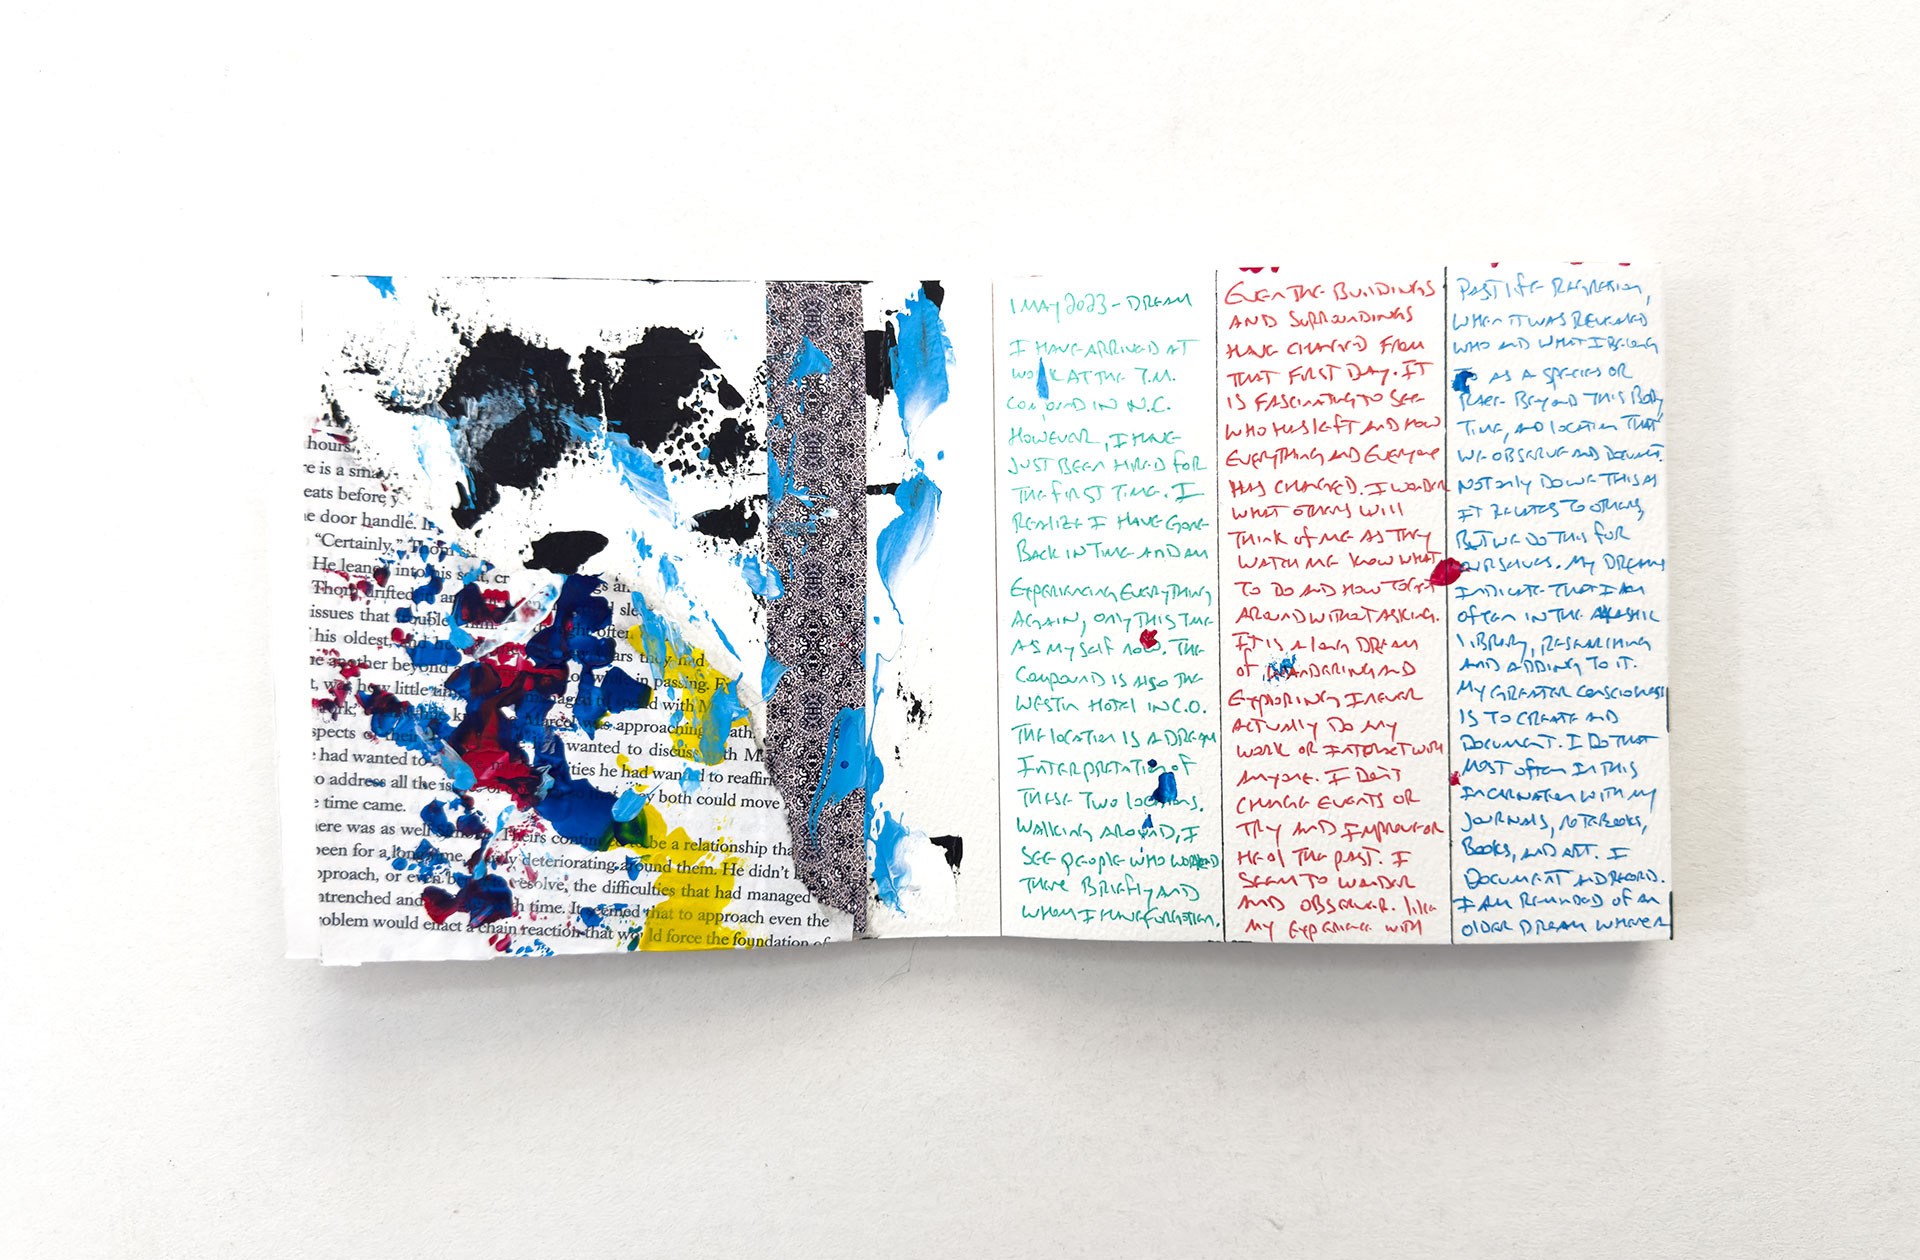 hours.
re is a sma
eats before y
e door handle. It
"Certainly," Thom
He leaned into his seat, cr
Thom drifted an
issues that trouble him.
his oldest, and
ne another beyond
t, was how little
in passing.
spend with M
Marcol was approaching
spects of their
wanted to discuss with M
had wanted to
ties he had wanted to reaffir
o address all the is
y both could move
e time came.
here was as well
Theirs continued to be a relationship tha
been for a long time, slowly deteriorating around them. He didn't
pproach, or even
resolve, the difficulties that had managed
ntrenched and
h time. It seemed that to approach even the
roblem would enact a chain reaction that would force the foundation of
1 MAY 2023 - DREAM
I HAVE ARRIVED AT
WORK AT THE T.M.
COMPOUND IN N.C.
HOWEVER, I HAVE
JUST BEEN HIRED FOR
THE FIRST TIME. I
REALIZE I HAVE GONE
BACK IN TIME AND AM
EXPERIENCING EVERYTHING
AGAIN, ONLY THIS TIME
AS MYSELF NOW. THE
COMPOUND IS ALSO THE
WESTIN HOTEL IN C.O.
THE LOCATION IS A DREAM
INTERPRETATION OF
THESE TWO LOCATIONS.
WALKING AROUND, I
SEE PEOPLE WHO WORKED
THERE BRIEFLY AND
WHOM I HAVE FORGOTTEN.
EVEN THE BUILDINGS
AND SURROUNDINGS
HAVE CHANGED FROM
THAT FIRST DAY. IT
IS FASCINATING TO SEE
WHO HAS LEFT AND HOW
EVERYTHING AND EVERYONE
HAS CHANGED. I WONDER
WHAT OTHERS WILL
THINK OF ME AS THEY
WATCH ME KNOW WHAT
TO DO AND HOW TO GET
AROUND WITHOUT ASKING.
IT IS A LONG DREAM
OF WANDERING AND
EXPLORING. I NEVER
ACTUALLY DO MY
WORK OR INTERACT WITH
ANYONE. I DON'T
CHANGE EVENTS OR
TRY AND IMPROVE OR
HEAL THE PAST. I
SEEM TO WANDER
AND OBSERVE. LIKE
MY EXPERIENCE WITH
PAST LIFE REGRESSION,
WHEN IT WAS REVEALED
WHO AND WHAT I BELONG
TO AS A SPECIES OR
RACE BEYOND THIS BODY,
TIME, AND LOCATION THAT
WE OBSERVE AND DOCUMENT.
NOT ONLY DO WE THIS AS
IT RELATES TO OTHERS,
BUT WE DO THIS FOR
OURSELVES. MY DREAMS
INDICATE THAT I AM
OFTEN IN THE AKASHIC
LIBRARY, RESEARCHING
AND ADDING TO IT.
MY GREATER CONSCIOUSNESS
IS TO CREATE AND
DOCUMENT. I DO THAT
MOST OFTEN IN THIS
INCARNATION WITH MY
JOURNALS, NOTEBOOKS,
BOOKS, AND ART. I
DOCUMENT AND RECORD.
I AM REMINDED OF AN
OLDER DREAM WHERE